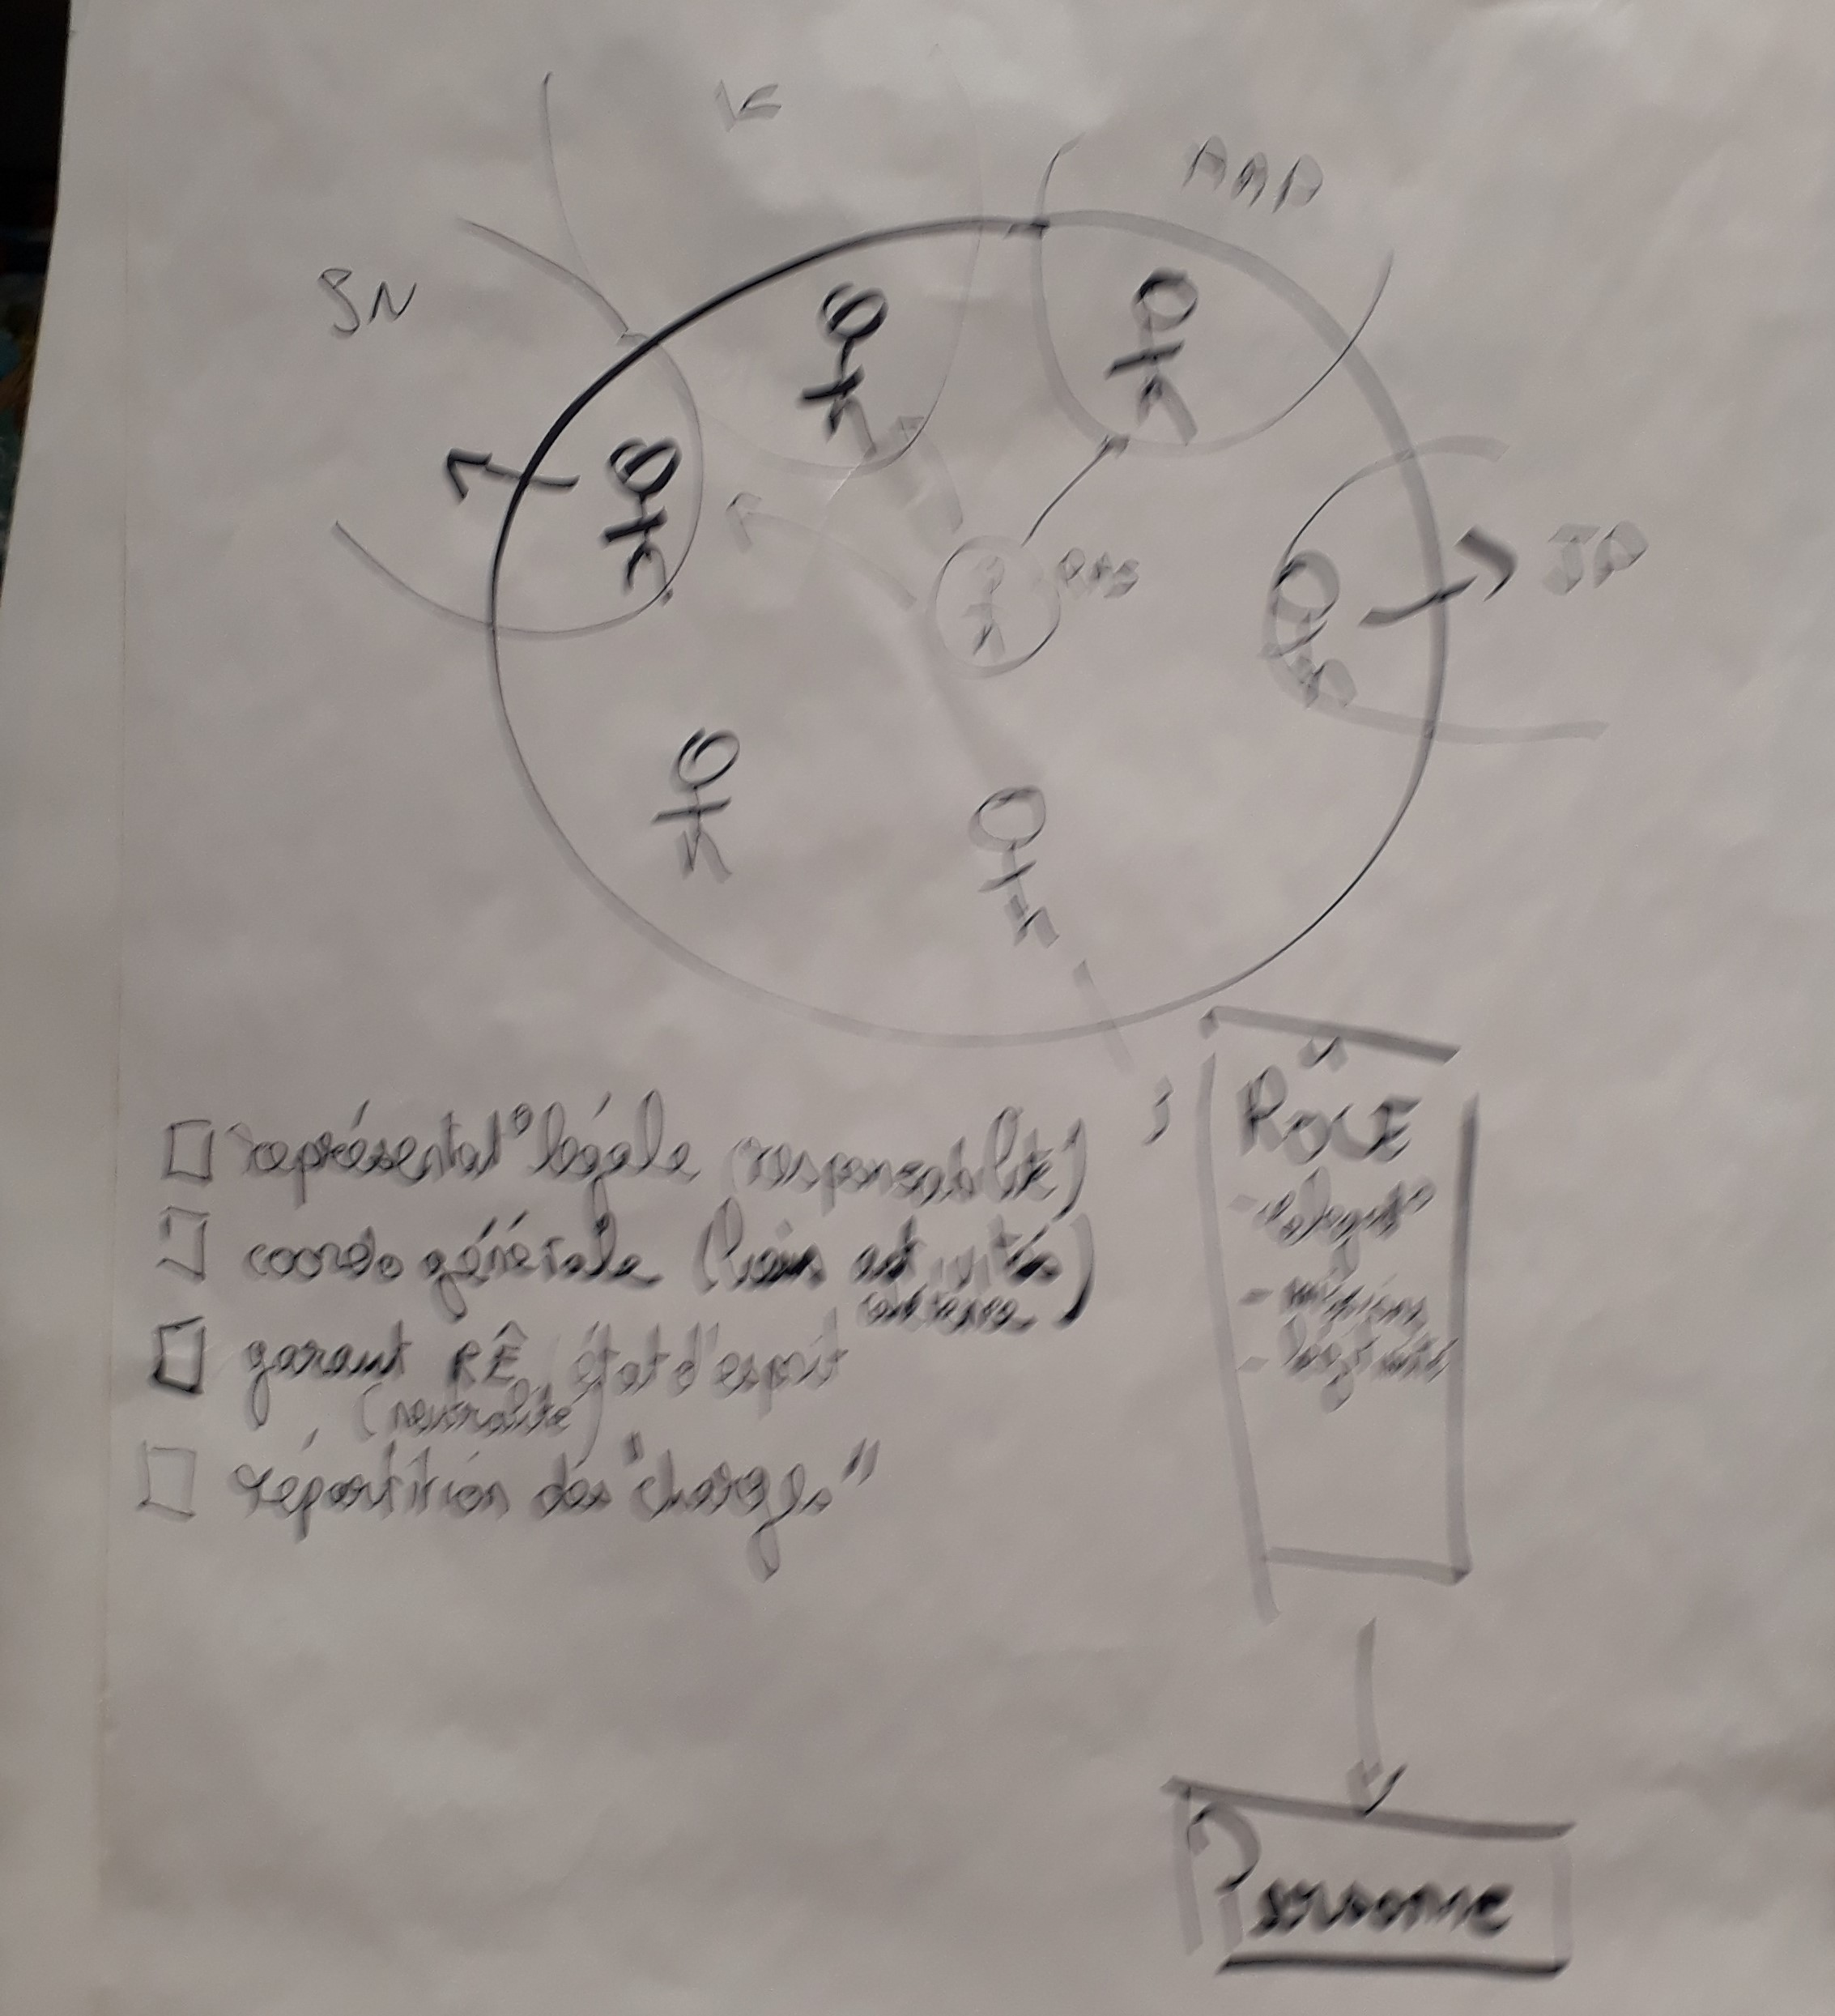 K
AAP
SN
JP
□ représentat° légale (responsabilité)
□ coordo générale (liens activités)
cohérence
□ garant RÊ, état d'esprit
(neutralité)
□ répartition des "charges"
RÔLE
- missions
- légitimité
Personne